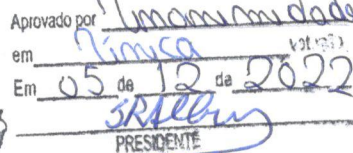 Aprovado por Unanimidade
em Única votação
Em 05 de 12 de 2022
PRESIDENTE